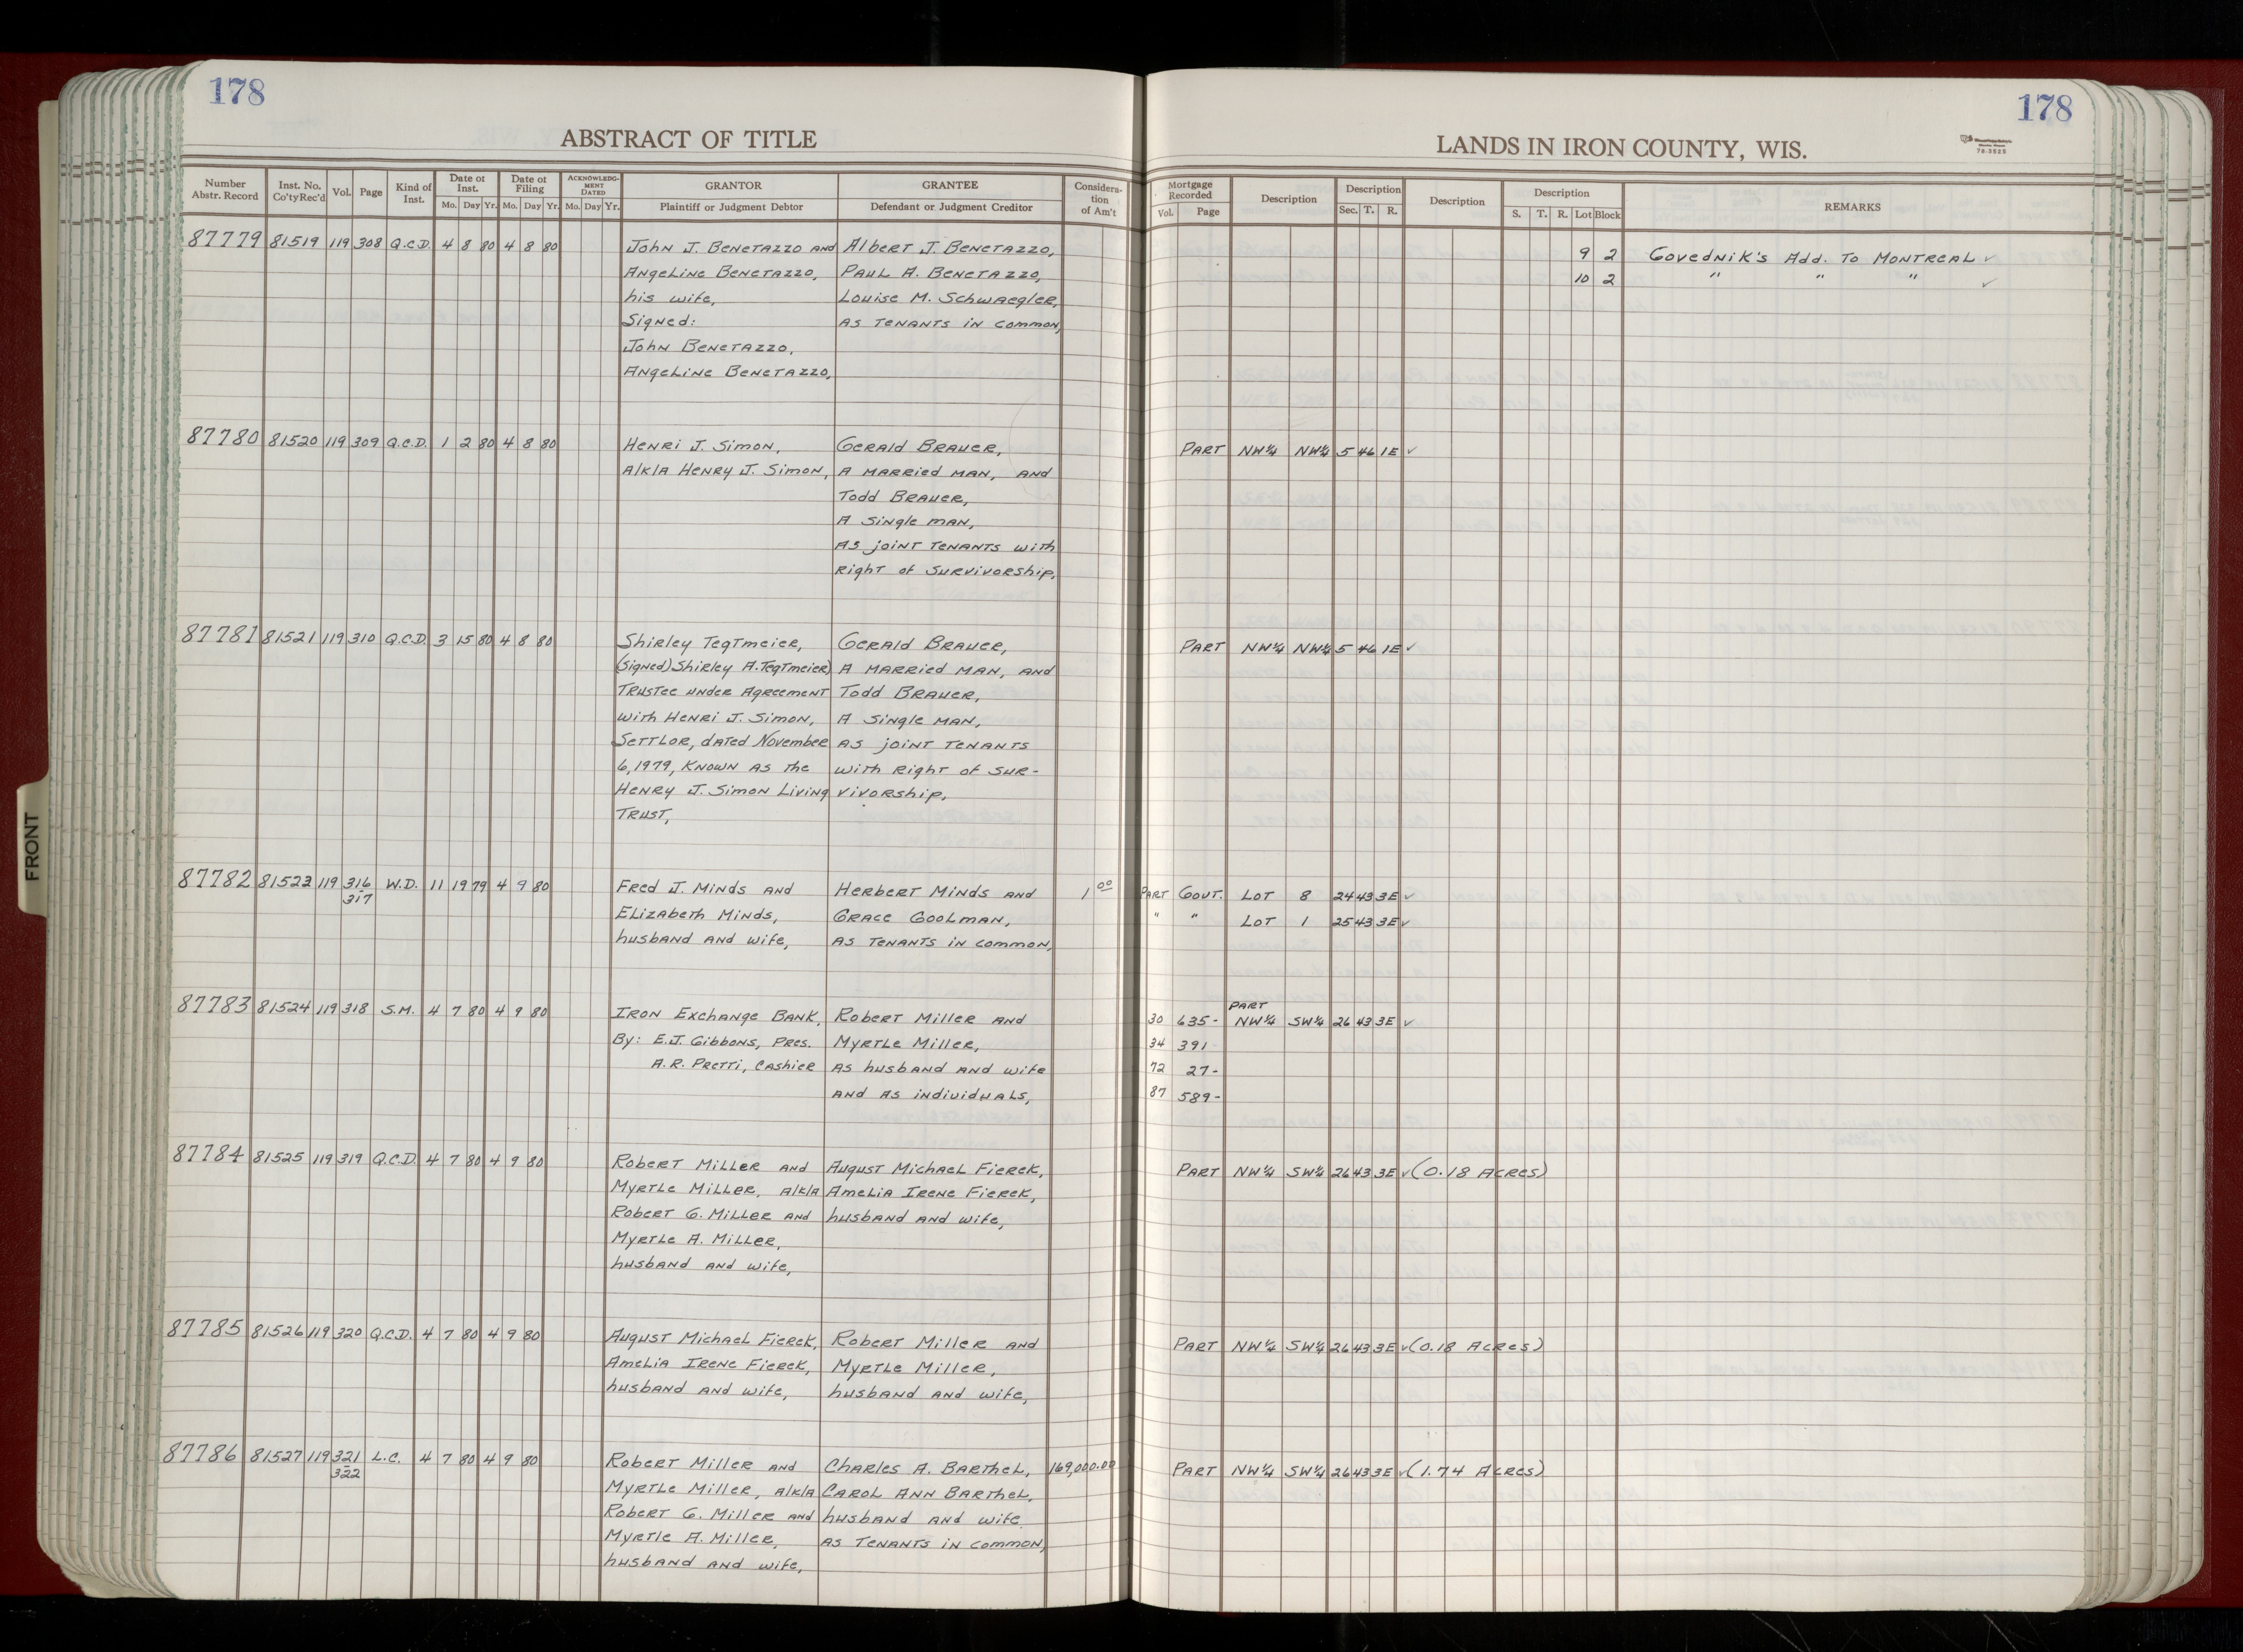 178
178
ABSTRACT OF TITLE
LANDS IN IRON COUNTY, WIS.
78-3525
Number Abstr. Record
Inst. No. Co'ty Rec'd
Vol.
Page
Kind of Inst.
Date of Inst.
Mo. Day Yr.
Date of Filing
Mo. Day Yr.
ACKNOWLEDG-MENT DATED
Mo. Day Yr.
GRANTOR
Plaintiff or Judgment Debtor
GRANTEE
Defendant or Judgment Creditor
Considera-tion of Am't
Mortgage Recorded
Vol. Page
Description
Description
Sec. T. R.
Description
Description
S. T. R. Lot Block
REMARKS
87779 81519 119 308 Q.C.D. 4 8 80 4 8 80 John J. Benetazzo and Albert J. Benetazzo, 9 2 Govednik's Add. To Montreal ✓
Angeline Benetazzo, Paul A. Benetazzo, 10 2 " " " ✓
his wife, Louise M. Schwaegler,
Signed: as tenants in common,
John Benetazzo,
Angeline Benetazzo,
87780 81520 119 309 Q.C.D. 1 2 80 4 8 80 Henri J. Simon, Gerald Brauer, Part NW¼ NW¼ 5 46 1E ✓
a/k/a Henry J. Simon, a married man, and
Todd Brauer,
a single man,
as joint tenants with
right of survivorship,
87781 81521 119 310 Q.C.D. 3 15 80 4 8 80 Shirley Tegtmeier, Gerald Brauer, Part NW¼ NW¼ 5 46 1E ✓
(signed) Shirley A. Tegtmeier) a married man, and
Trustee under Agreement Todd Brauer,
with Henri J. Simon, a single man,
Settlor, dated November as joint tenants
6, 1979, known as the with right of sur-
Henry J. Simon Living vivorship,
Trust,
87782 81523 119 316-317 W.D. 11 19 79 4 9 80 Fred J. Minds and Herbert Minds and 1 00 Part Gout. Lot 8 24 43 3E ✓
Elizabeth Minds, Grace Goolman, " " Lot 1 25 43 3E ✓
husband and wife, as tenants in common,
87783 81524 119 318 S.M. 4 7 80 4 9 80 Iron Exchange Bank, Robert Miller and 30 635- Part NW¼ SW¼ 26 43 3E ✓
By: E.J. Gibbons, Pres. Myrtle Miller, 34 391
A.R. Pretti, Cashier as husband and wife 72 27-
and as individuals, 87 589-
87784 81525 119 319 Q.C.D. 4 7 80 4 9 80 Robert Miller and August Michael Fierek, Part NW¼ SW¼ 26 43 3E ✓ (0.18 Acres)
Myrtle Miller, a/k/a Amelia Irene Fierek,
Robert G. Miller and husband and wife,
Myrtle A. Miller,
husband and wife,
87785 81526 119 320 Q.C.D. 4 7 80 4 9 80 August Michael Fierek, Robert Miller and Part NW¼ SW¼ 26 43 3E ✓ (0.18 Acres)
Amelia Irene Fierek, Myrtle Miller,
husband and wife, husband and wife,
87786 81527 119 321-322 L.C. 4 7 80 4 9 80 Robert Miller and Charles A. Barthel, 169,000.00 Part NW¼ SW¼ 26 43 3E ✓ (1.74 Acres)
Myrtle Miller, a/k/a Carol Ann Barthel,
Robert G. Miller and husband and wife
Myrtle A. Miller, as tenants in common,
husband and wife,
FRONT